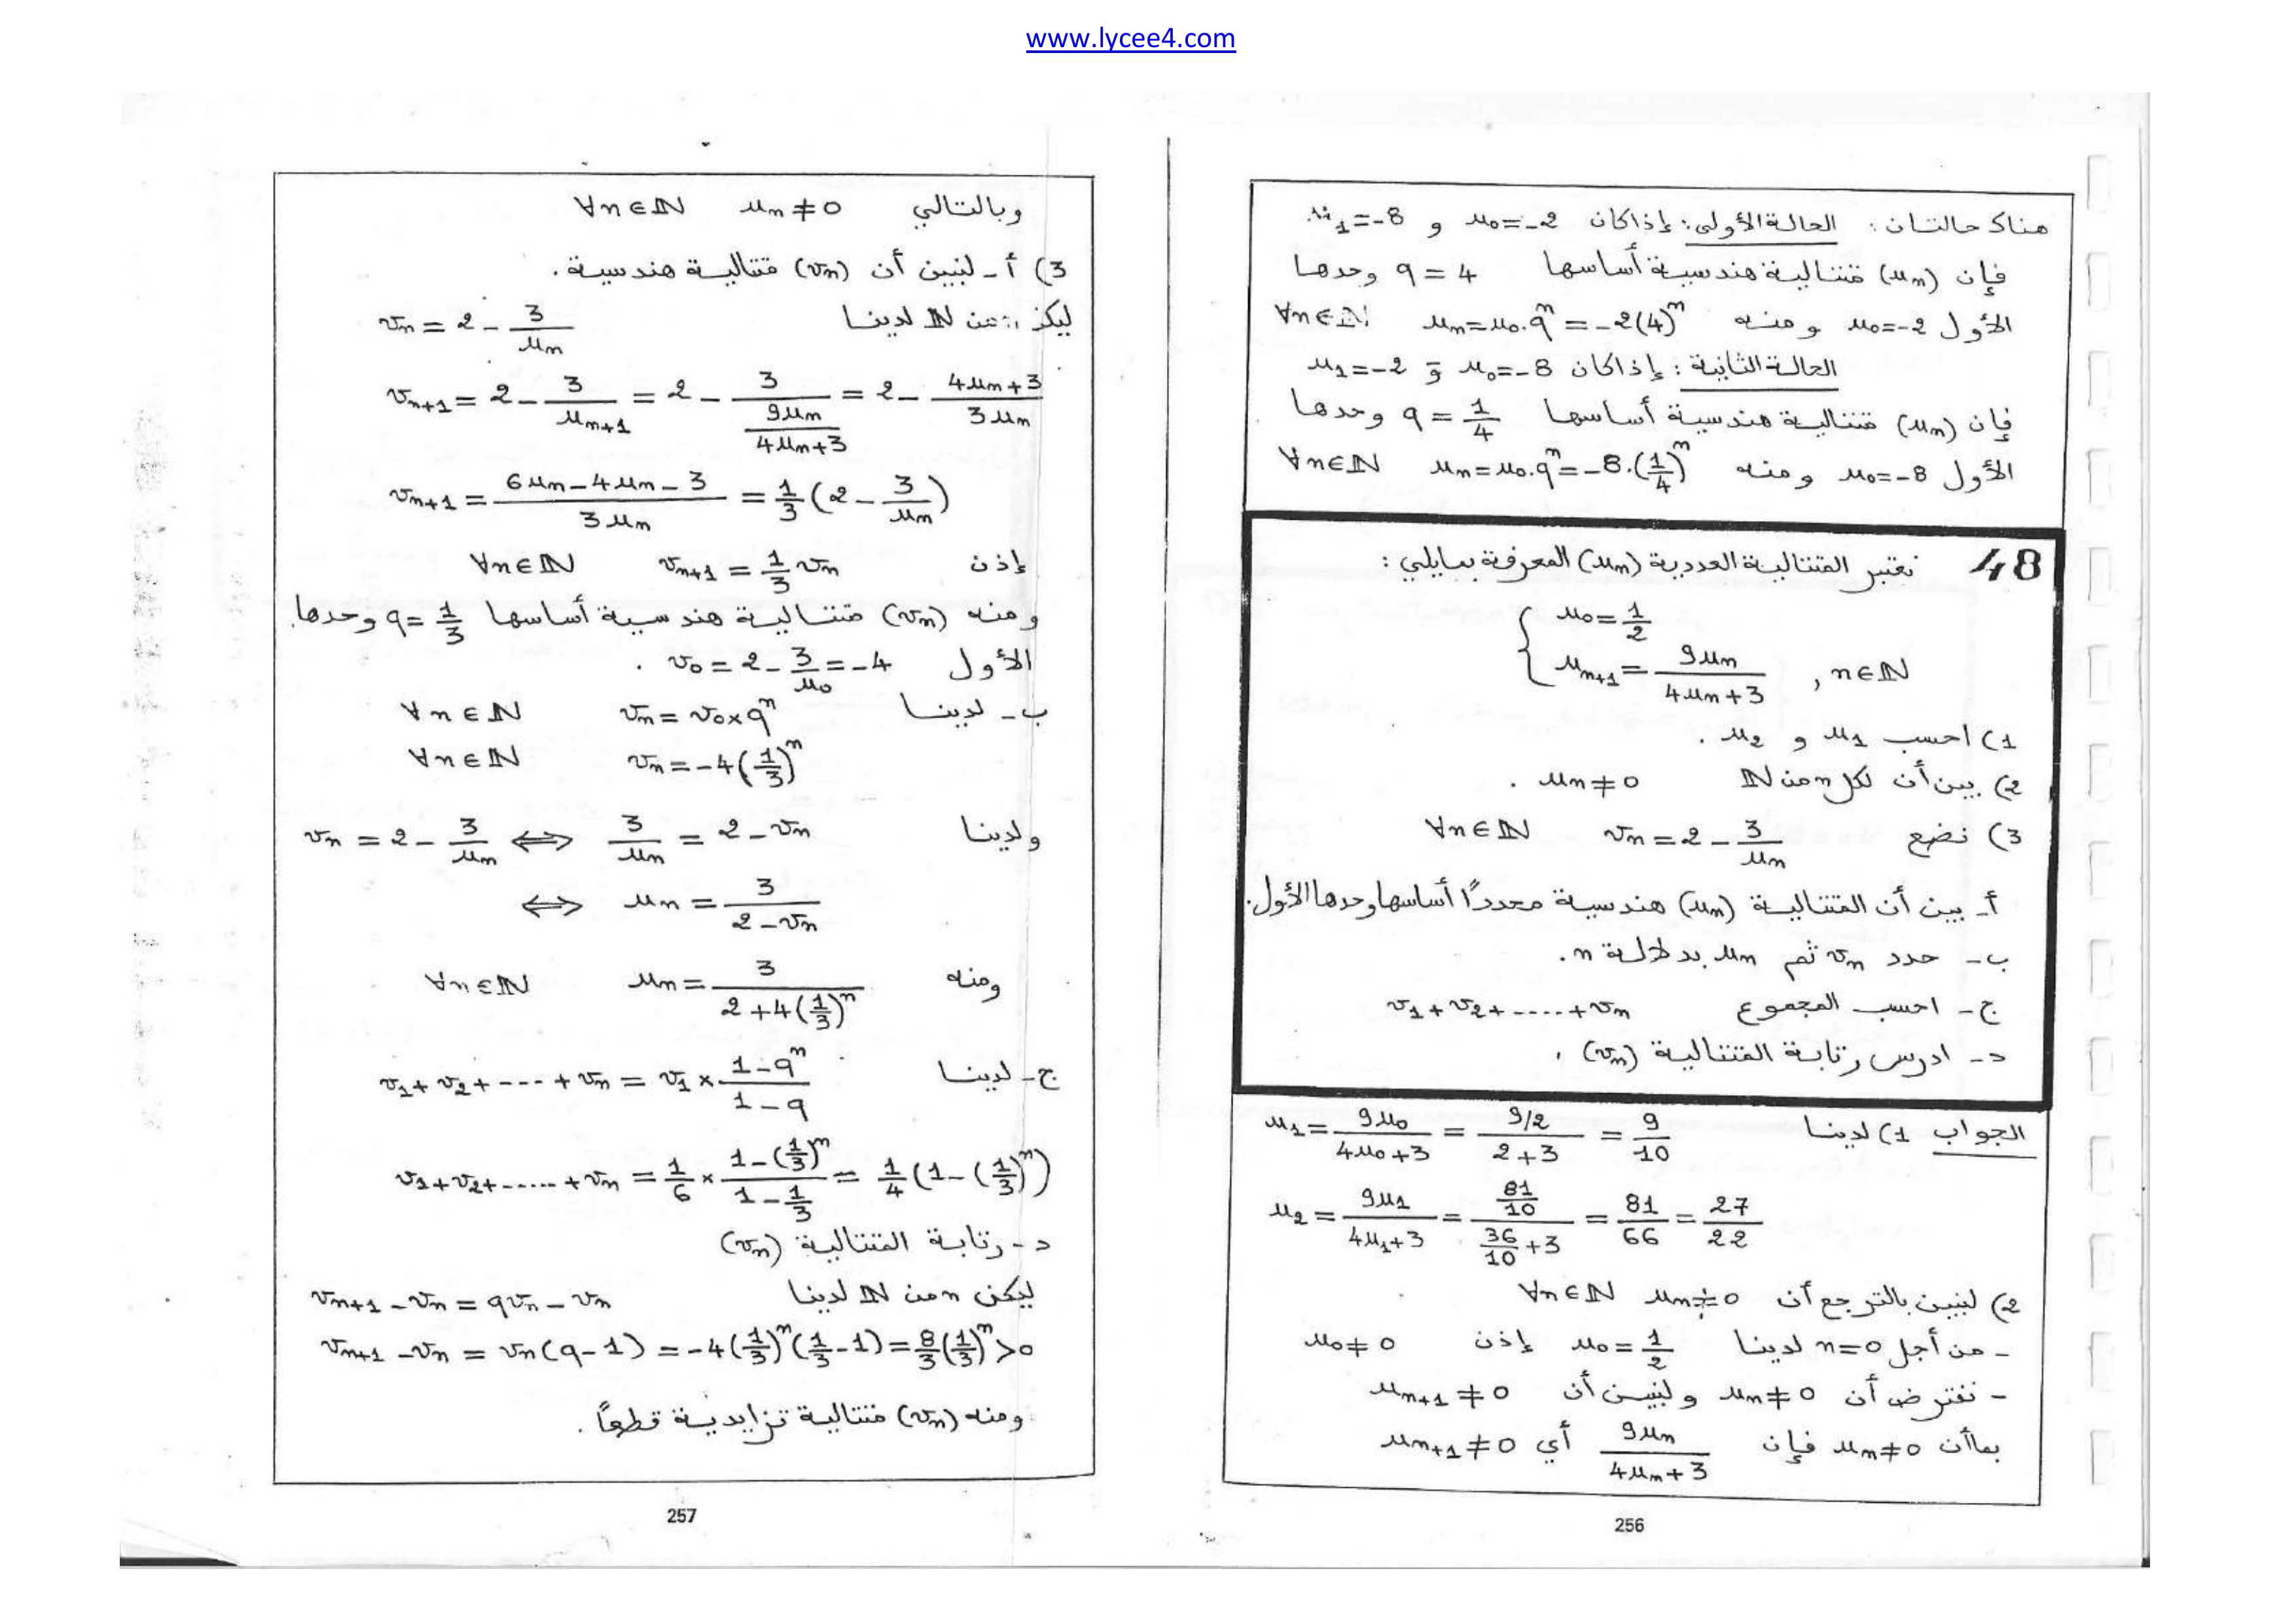 www.lycee4.com
هناك حالتان : الحالة الأولى : إذا كان u₀=-2 و u₁=-8
فإن (uₙ) متتالية هندسية أساسها q = 4 وحدها
الأول u₀=-2 ومنه uₙ=u₀.qⁿ = -2(4)ⁿ ∀n∈ℕ
الحالة الثانية : إذا كان u₀=-8 و u₁=-2
فإن (uₙ) متتالية هندسية أساسها q = 1/4 وحدها
الأول u₀=-8 ومنه uₙ=u₀.qⁿ=-8.(1/4)ⁿ ∀n∈ℕ
48 نعتبر المتتالية العددية (uₙ) المعرفة بمايلي :
{ u₀ = 1/2
uₙ₊₁ = 9uₙ/(4uₙ+3) , n∈ℕ
1) احسب u₁ و u₂ .
2) بين أن لكل n من ℕ uₙ ≠ 0 .
3) نضع vₙ = 2 - 3/uₙ ∀n∈ℕ
أ- بين أن المتتالية (uₙ) هندسية محددًا أساسها وحدها الأول.
ب- حدد vₙ ثم uₙ بدلالة n .
ج- احسب المجموع v₁+v₂+....+vₙ
د- ادرس رتابة المتتالية (vₙ) .
الجواب 1) لدينا u₁ = 9u₀/(4u₀+3) = (9/2)/(2+3) = 9/10
u₂ = 9u₁/(4u₁+3) = (81/10)/(36/10+3) = 81/66 = 27/22
2) لنبين بالترجع أن uₙ≠0 ∀n∈ℕ
- من أجل n=0 لدينا u₀=1/2 إذن u₀≠0
- نفترض أن uₙ≠0 ولنبين أن uₙ₊₁≠0
بما أن uₙ≠0 فإن 9uₙ/(4uₙ+3) أي uₙ₊₁≠0
256
وبالتالي uₙ≠0 ∀n∈ℕ
3) أ- لنبين أن (vₙ) متتالية هندسية .
ليكن من ℕ لدينا vₙ = 2 - 3/uₙ
vₙ₊₁ = 2 - 3/uₙ₊₁ = 2 - 3/(9uₙ/(4uₙ+3)) = 2 - (4uₙ+3)/3uₙ
vₙ₊₁ = (6uₙ-4uₙ-3)/3uₙ = 1/3(2 - 3/uₙ)
إذن vₙ₊₁ = 1/3 vₙ ∀n∈ℕ
ومنه (vₙ) متتالية هندسية أساسها q=1/3 وحدها
الأول v₀ = 2 - 3/u₀ = -4 .
ب- لدينا vₙ = v₀×qⁿ ∀n∈ℕ
vₙ = -4(1/3)ⁿ ∀n∈ℕ
ولدينا vₙ = 2 - 3/uₙ ⟺ 3/uₙ = 2 - vₙ
⟺ uₙ = 3/(2-vₙ)
ومنه uₙ = 3/(2+4(1/3)ⁿ) ∀n∈ℕ
ج- لدينا v₁+v₂+----+vₙ = v₁ × (1-qⁿ)/(1-q)
v₁+v₂+.....+vₙ = 1/6 × (1-(1/3)ⁿ)/(1-1/3) = 1/4(1-(1/3)ⁿ)
د- رتابة المتتالية (vₙ)
ليكن n من ℕ لدينا vₙ₊₁-vₙ = qvₙ-vₙ
vₙ₊₁-vₙ = vₙ(q-1) = -4(1/3)ⁿ(1/3-1) = 8/3(1/3)ⁿ>0
ومنه (vₙ) متتالية تزايدية قطعاً .
257